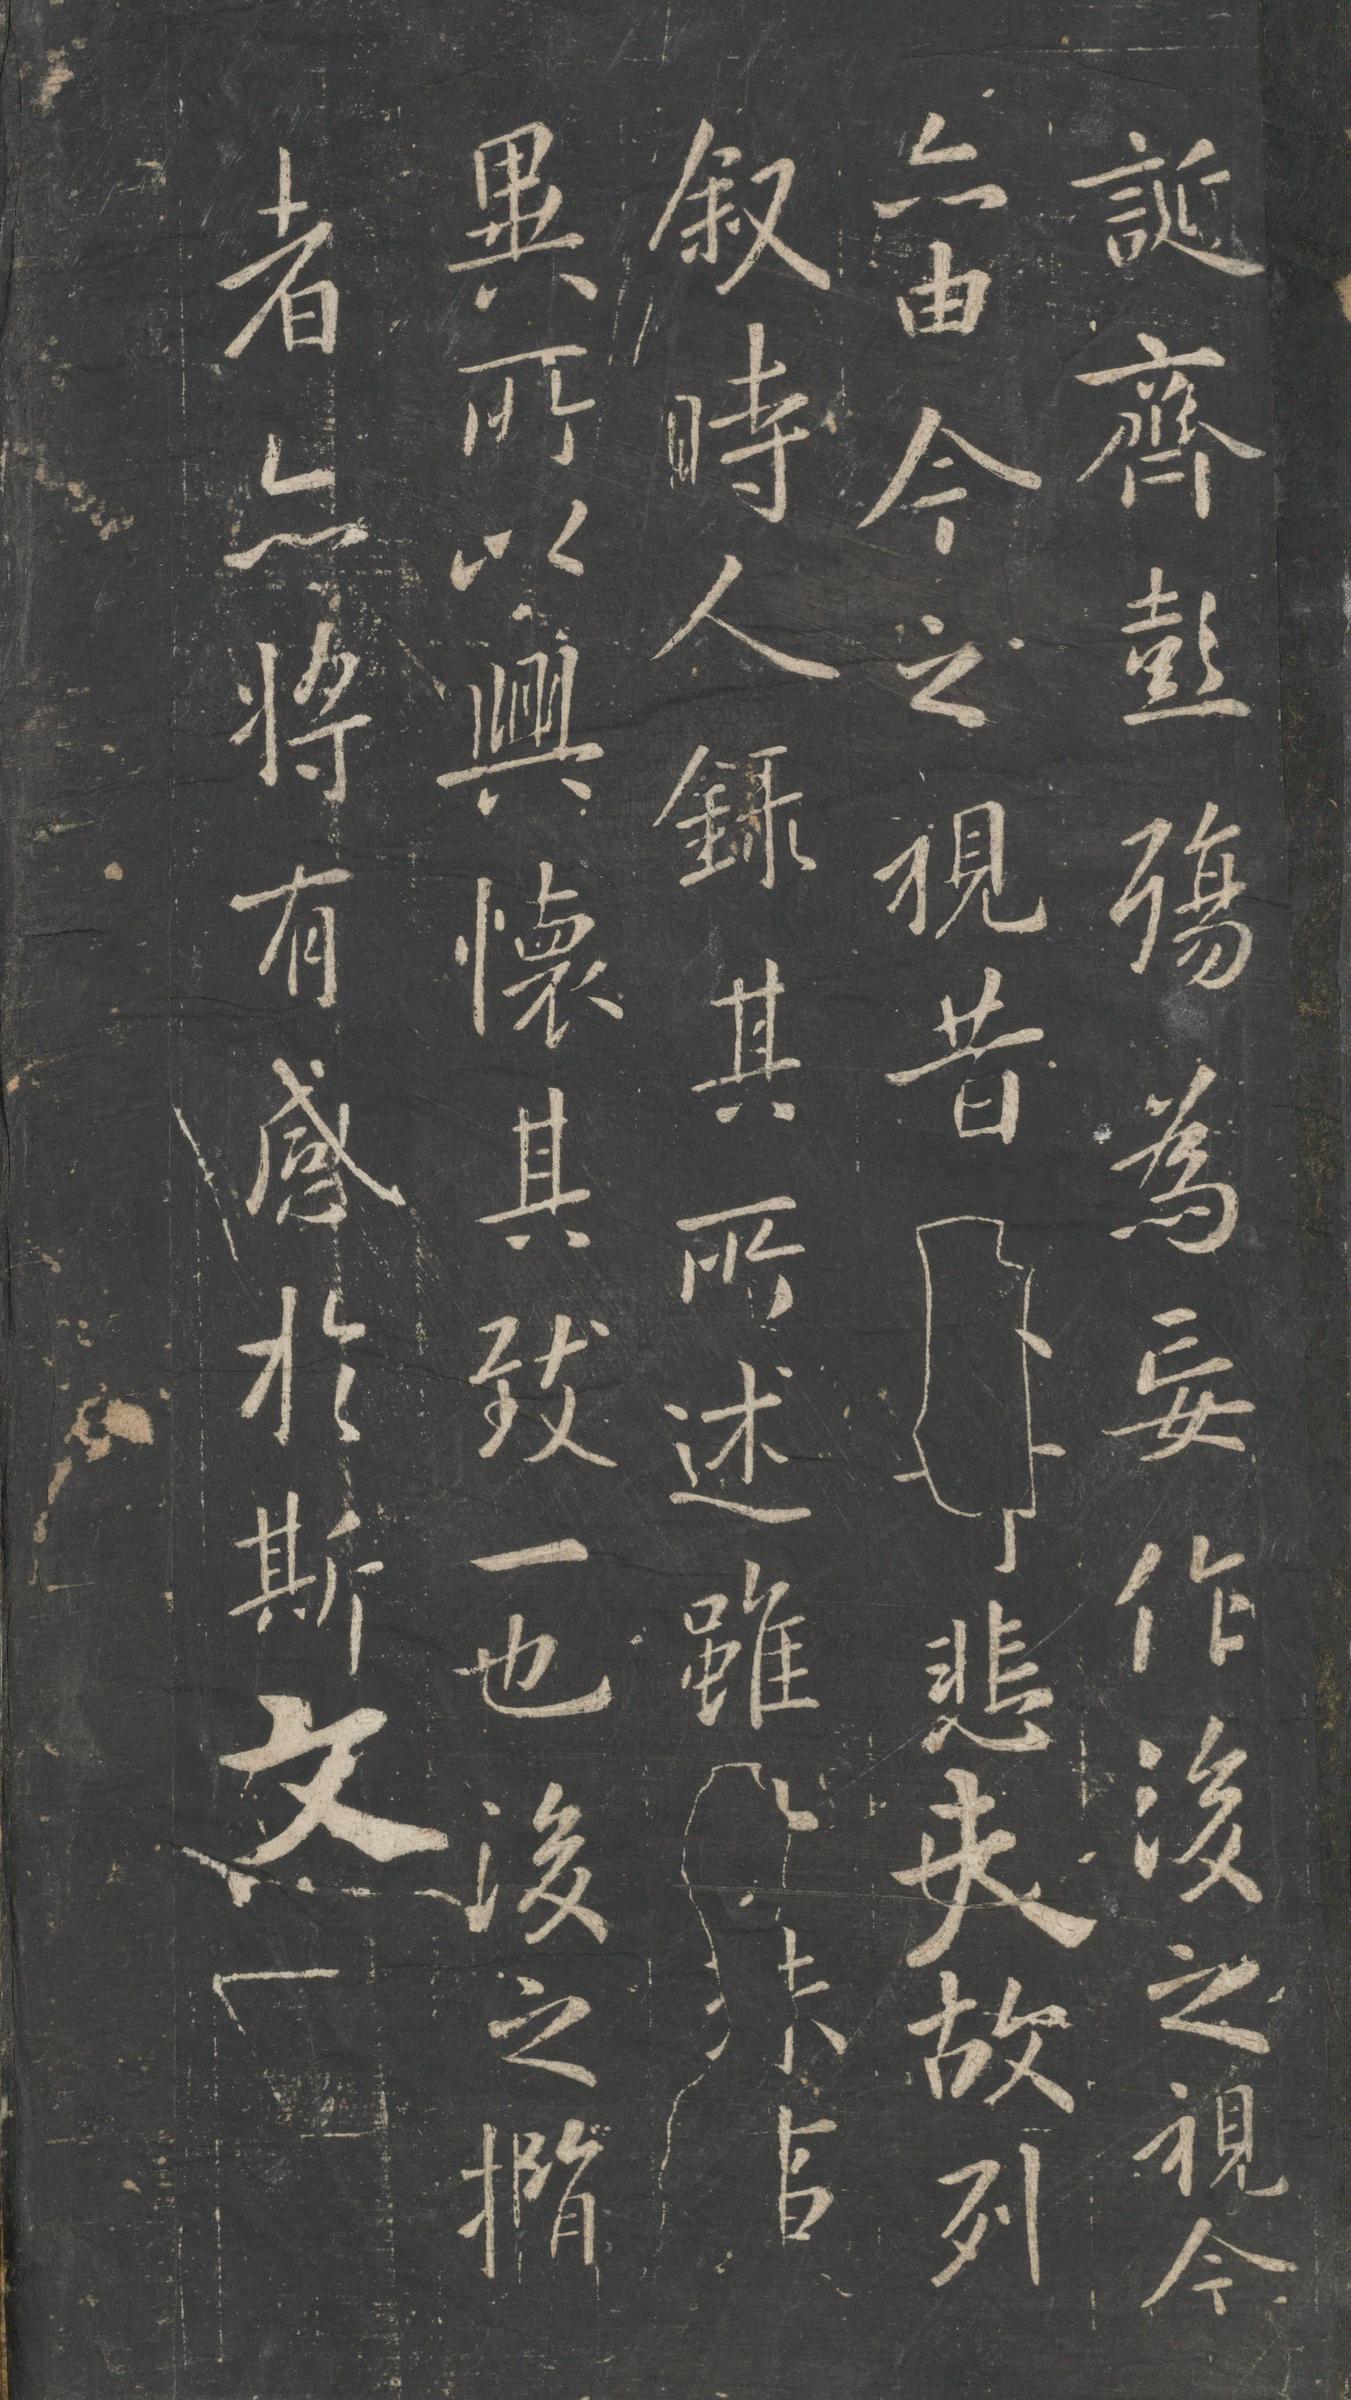 誕齊彭殤為妄作後之視今
亦由今之視昔悲夫故列
叙時人錄其所述雖
異所以興懷其致一也後之攬
者亦將有感於斯文